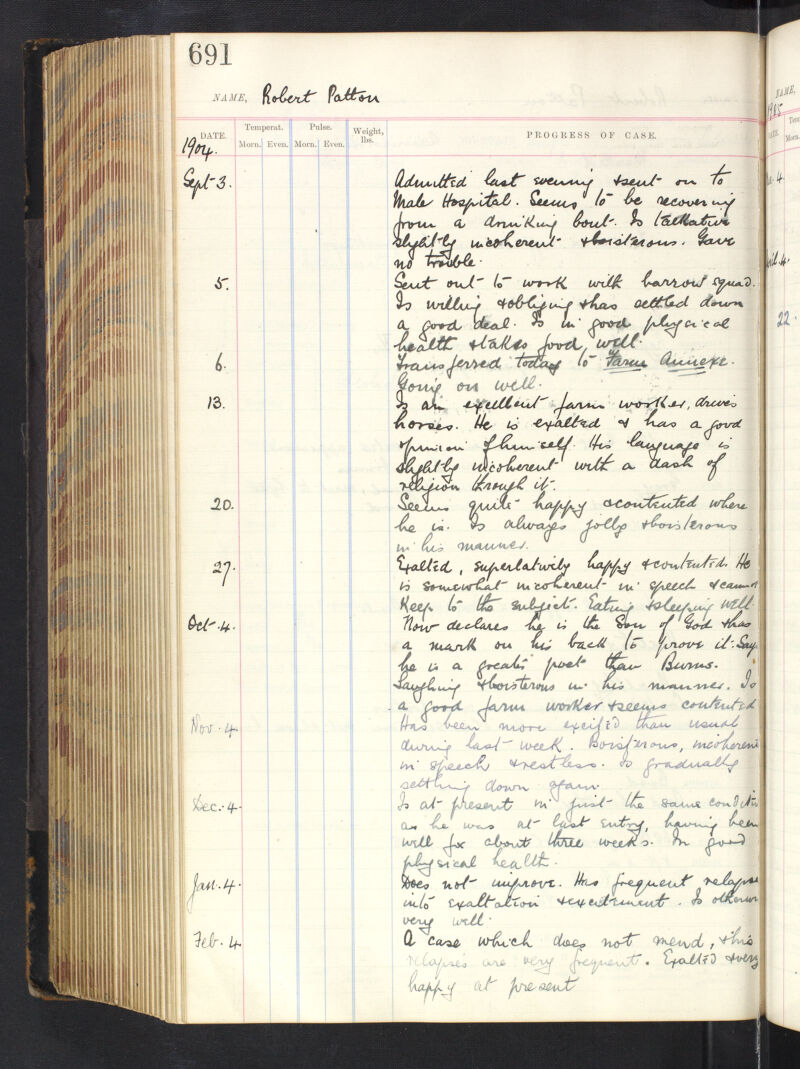 691
NAME, Robert Patton
DATE. Temperat. Pulse. Weight, lbs. PROGRESS OF CASE.
Morn. Even. Morn. Even.
1904.
Sept 3. Admitted last evening & sent on to
Male Hospital. Seems to be recovering
from a drinking bout. Is talkative
slightly incoherent & boisterous. Gave
no trouble.
5. Sent out to work with barrow squad.
Is willing & obliging & has settled down
a good deal. Is in good physical
health & takes food well.
6. Transferred today to Farm Annexe.
Going on well.
13. Is an excellent farm worker, drives
horses. He is exalted & has a good
opinion of himself. His language is
slightly incoherent with a dash of
religion through it.
20. Seems quite happy & contented where
he is. Is always jolly & boisterous
in his manner.
27. Exalted, superlatively happy & contented. He
is somewhat incoherent in speech & cannot
keep to the subject. Eating & sleeping well.
Oct. 4. Now declares he is the Son of God & has
a mark on his back to prove it. Says
he is a greater poet than Burns.
Laughing & boisterous in his manner. Is
a good farm worker & seems contented
Nov. 4. Has been more excited than usual
during last week. Boisterous, incoherent
in speech & restless. Is gradually
settling down again.
Dec. 4. Is at present in just the same condition
as he was at last entry, having been
well for about three weeks. In good
physical health.
Jan. 4. Does not improve. Has frequent relapses
into exaltation & excitement. Is otherwise
very well.
Feb. 4. A case which does not mend, & his
relapses are very frequent. Exalted & very
happy at present
NAME,
1905
Morn.
4.
4.
22.